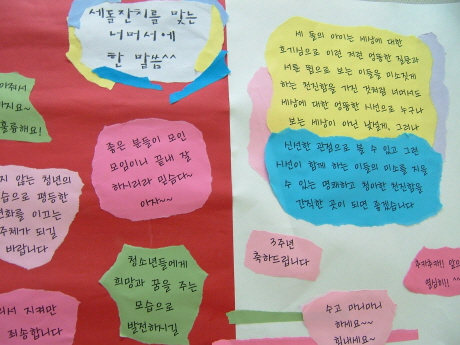 세돌잔치를 맞는
너머서에
한 말씀^^
아줘서
하지요~
훌륭해요!
좋은 분들이 모인
모임이니 끝내 잘
하시리라 믿습다~
아자~~
지 않는 청년의
습으로 평등한
변화를 이끄는
주체가 되길
바랍니다
청소년들에게
희망과 꿈을 주는
모습으로
발전하시길
에서 지켜만
죄송합니다
세 돌의 아이는 세상에 대한
호기심으로 이런 저런 엉뚱한 질문과
서툰 뜀으로 보는 이들을 미소짓게
하는 천진함을 가진 것처럼 너머서도
세상에 대한 엉뚱한 시선으로 누구나
보는 세상이 아닌 낯설게, 그러나
신선한 관점으로 볼 수 있고 그런
시선이 함께 하는 이들의 미소를 지을
수 있는 명쾌하고 청아한 천진함을
간직한 곳이 되면 좋겠습니다
3주년
축하드립니다
수고 마니마니
하세요~~
힘내세요~